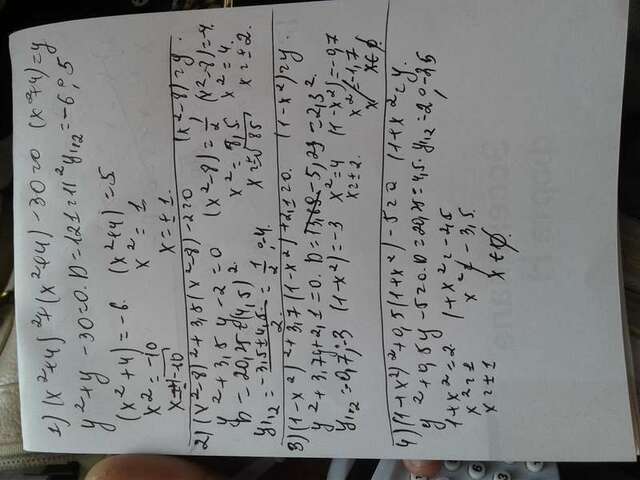 1) (x²+4)²+(x²+4)-30=0 (x²+4)=y
y²+y-30=0. D=121=11² y₁,₂=-6; 5
(x²+4)=-6. (x²+4)=5.
x²=-10 x²=1
x=±1.
2) (x²-8)²+3,5(x²-8)-2=0 (x²-8)=y.
y²+3,5y-2=0 (x²-8)=1/2 (x²-8)=-4.
D=20,25=(4,5)². x²=8,5 x²=4.
y₁,₂=(-3,5±4,5)/2=1/2; -4. x=±√8,5 x=±2.
3) (1-x²)²+3,7(1-x²)+2,1=0. (1-x²)=y.
y²+3,7y+2,1=0. D=13,69-5,29=2,3².
y₁,₂=-0,7;-3 (1-x²)=-3 x²=4 (1-x²)=-0,7
x=±2. x²=-1,7
x∈∅.
4) (1+x²)²+0,5(1+x²)-5=0 (1+x²=y.
y²+0,5y-5=0. D=20,25=4,5. y₁,₂=2;-2,5
1+x²=2. 1+x²=-2,5
x²=1 x²≠-3,5.
x=±1 x∈∅.